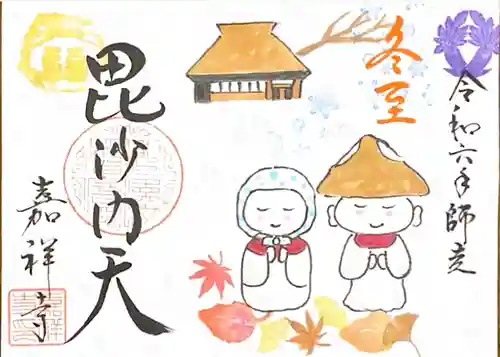 冬至
令和六年師走
毘沙門天
嘉祥寺